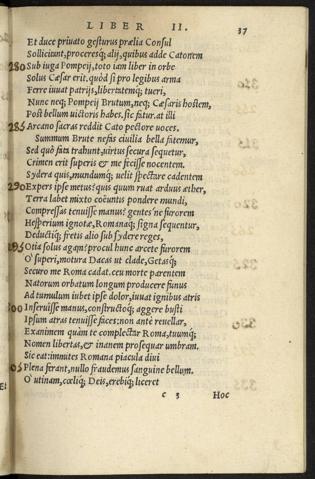 LIBER II. 37
Et duce priuato gesturus prælia Consul
Sollicitant, proceresq; alij, quibus adde Catonem
280 Sub iuga Pompeij, toto iam liber in orbe
Solus Cæsar erit, quòd si pro legibus arma
Ferre iuuat patrijs, libertatemq; tueri,
Nunc neq; Pompeij Brutum, neq; Cæsaris hostem,
Post bellum uictoris habes. sic fatur. at illi
285 Arcano sacras reddit Cato pectore uoces.
Summum Brute nefas ciuilia bella fatemur,
Sed quò fata trahunt, uirtus secura sequetur,
Crimen erit superis & me fecisse nocentem.
Sydera quis, mundumq; uelit spectare cadentem
290 Expers ipse metus? quis quum ruat arduus æther,
Terra labet mixto coëuntis pondere mundi,
Compressas tenuisse manus? gentes ne furorem
Hesperium ignotæ, Romanaq; signa sequentur,
Deductiq; fretis alio sub sydere reges,
295 Otia solus agam? procul hunc arcete furorem
O superi, motura Dacas ut clade, Getasq;
Securo me Roma cadat. ceu morte parentem
Natorum orbatum longum producere funus
Ad tumulum iubet ipse dolor, iuuat ignibus atris
300 Inseruisse manus, constructoq; aggere busti
Ipsum atras tenuisse faces: non antè reuellar,
Exanimem quàm te complectar Roma, tuumq;
Nomen libertas, & inanem prosequar umbram.
Sic eat: immites Romana piacula diui
05 Plena ferant, nullo fraudemus sanguine bellum.
O utinam, cœliq; Deis, erebiq; liceret
c 3 Hoc